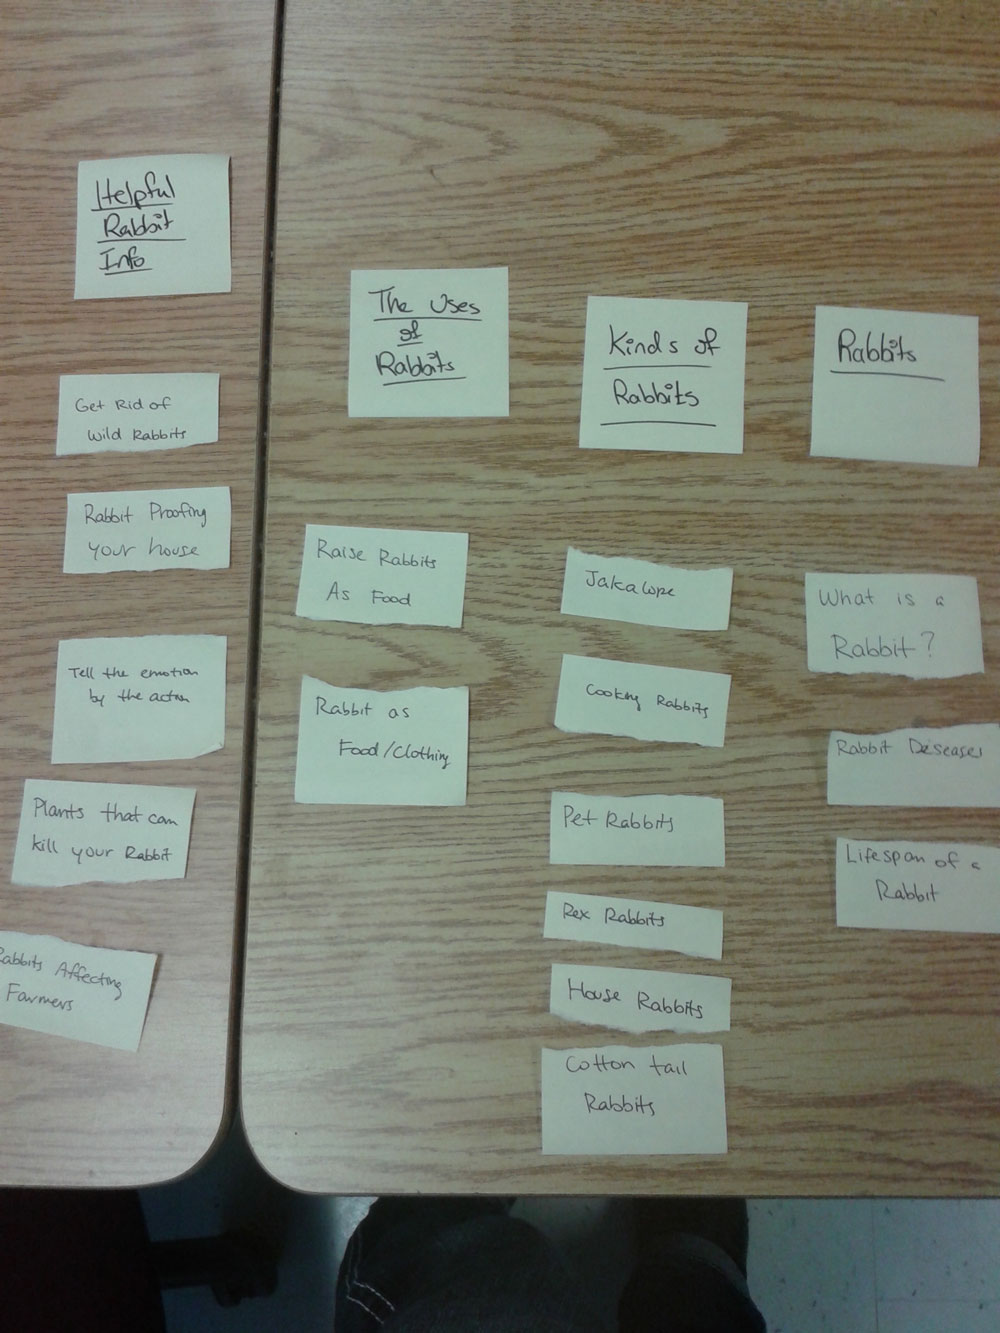 Helpful
Rabbit
Info
Get Rid of
Wild Rabbits
Rabbit Proofing
your house
Tell the emotion
by the action
Plants that can
kill your Rabbit
Rabbits Affecting
Farmers
The Uses
of
Rabbits
Raise Rabbits
As Food
Rabbit as
Food/Clothing
Kinds of
Rabbits
Jakalope
Cooking Rabbits
Pet Rabbits
Rex Rabbits
House Rabbits
Cotton tail
Rabbits
Rabbits
What is a
Rabbit?
Rabbit Diseases
Lifespan of a
Rabbit